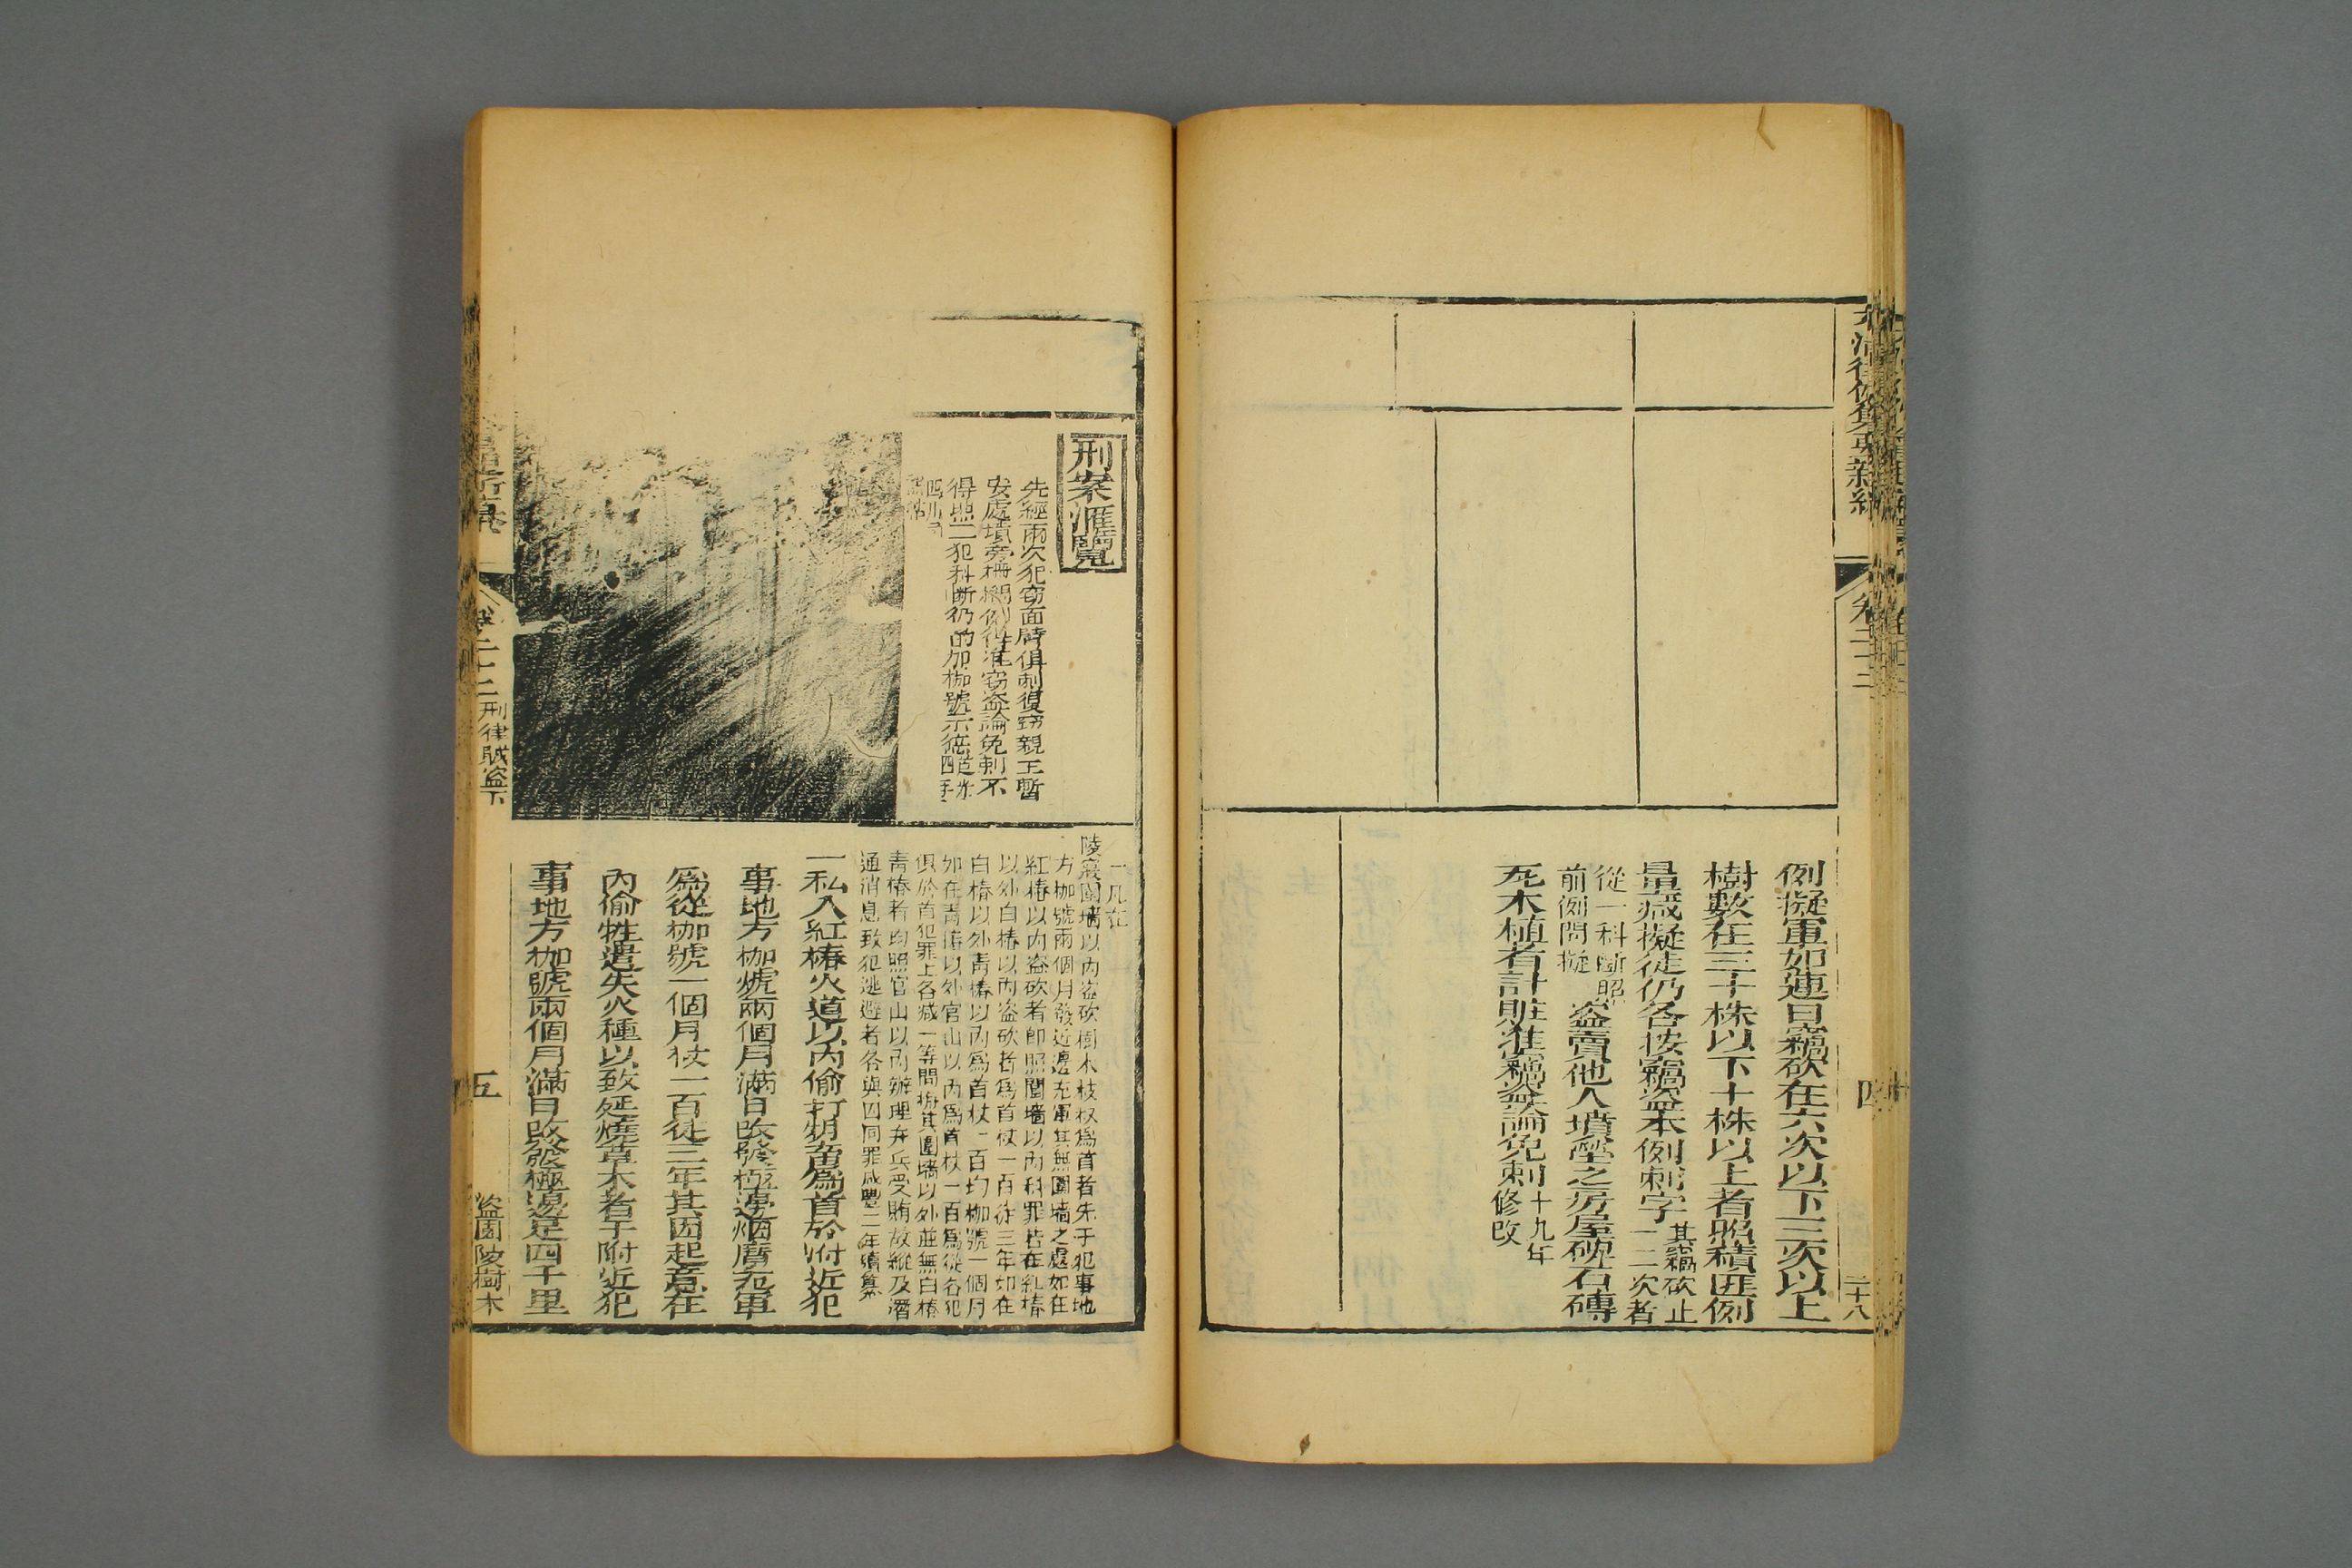 卷二十三
四
二十八
例擬軍如連日竊砍在六次以下三次以上
樹數在三十株以下十株以上者照積匪例
量減擬徒仍各按竊盜本例刺字其竊砍止
一二次者
從一科斷照
前例問擬盜賣他人墳塋之房屋碑石磚
瓦木植者計賍準竊盜論免刺十九年
修改
刑案滙覽
先經兩次犯窃面臂俱刺復窃親王暫
安處墳旁柵欄例仍准窃盜論免刺不
得照二犯科斷仍酌加枷號示
一凡在
陵寢圍墻以內盜砍樹木枝杈為首者先于犯事地
方枷號兩個月發近邊充軍其無圍墻之處如在
紅椿以內盜砍者即照圍墻以內科罪若在紅椿
以外白椿以內盜砍者為首杖一百徒三年如在
白椿以外青椿以內為首杖一百均枷號一個月
如在青椿以外官山以內為首杖一百為從各犯
俱於首犯罪上各減一等問擬其圍墻以外並無白椿
青椿者均照官山以內辦理弁兵受賄故縱及潛
通消息致犯逃避者各與囚同罪咸豐二年續纂
一私入紅椿火道以內偷打牲畜為首於附近犯
事地方枷號兩個月滿日改發極邊烟瘴充軍
為從枷號一個月杖一百徒三年其因起意在
內偷牲遺失火種以致延燒草木者于附近犯
事地方枷號兩個月滿日改發極邊足四千里
卷二十三
刑律賊盜下
五
盜園陵樹木